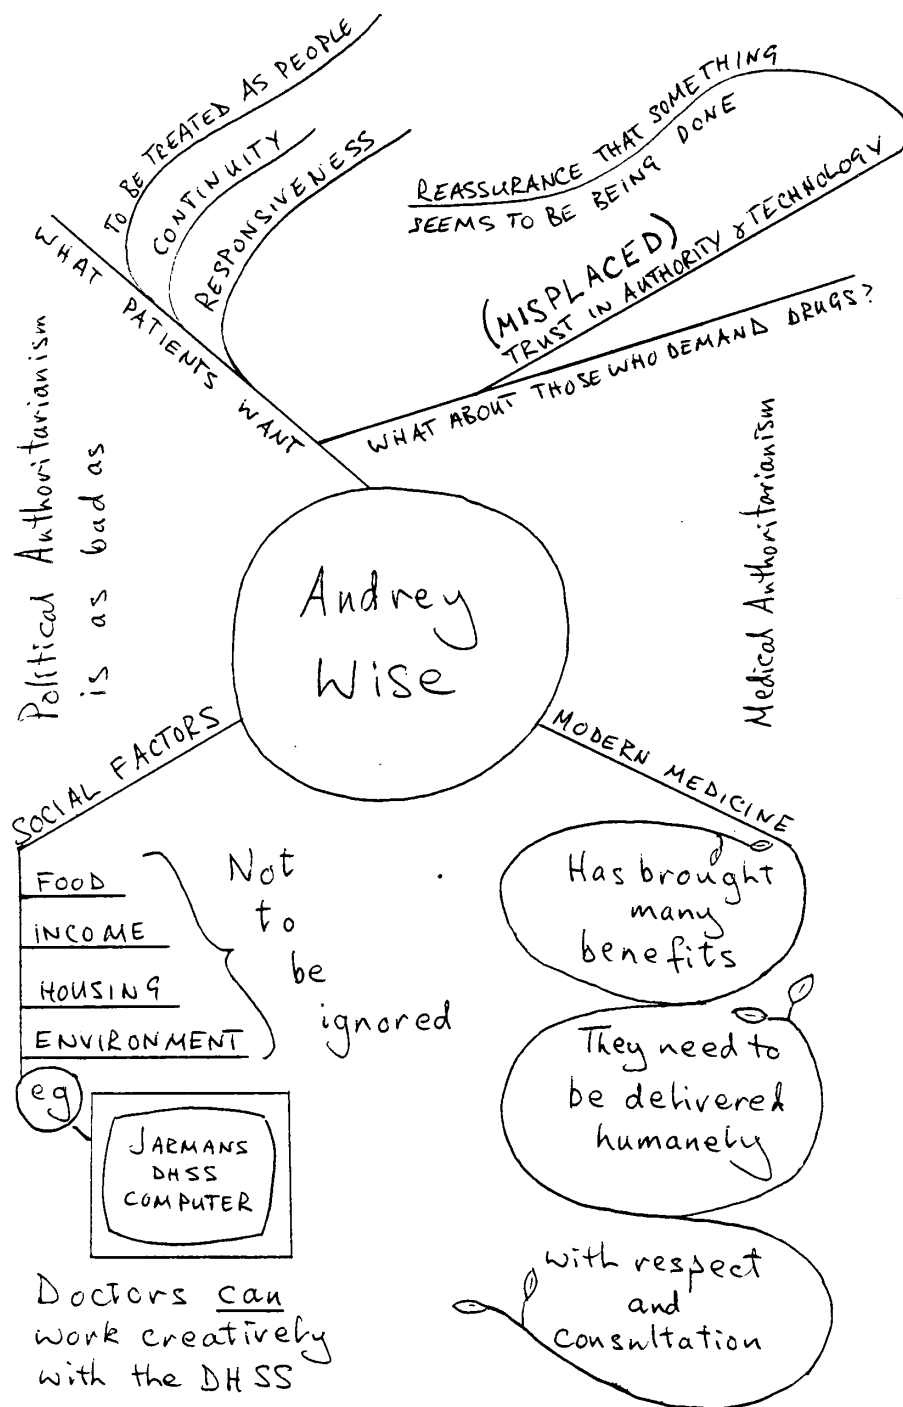 TO BE TREATED AS PEOPLE
CONTINUITY
RESPONSIVENESS
WHAT PATIENTS WANT
REASSURANCE THAT SOMETHING
SEEMS TO BE BEING DONE
(MISPLACED)
TRUST IN AUTHORITY & TECHNOLOGY
WHAT ABOUT THOSE WHO DEMAND DRUGS?
Political Authoritarianism
is as bad as
Medical Authoritarianism
Audrey
Wise
SOCIAL FACTORS
FOOD
INCOME
HOUSING
ENVIRONMENT
Not
to
be
ignored
eg
JARMANS
DHSS
COMPUTER
Doctors can
work creatively
with the DHSS
MODERN MEDICINE
Has brought
many
benefits
They need to
be delivered
humanely
with respect
and
consultation